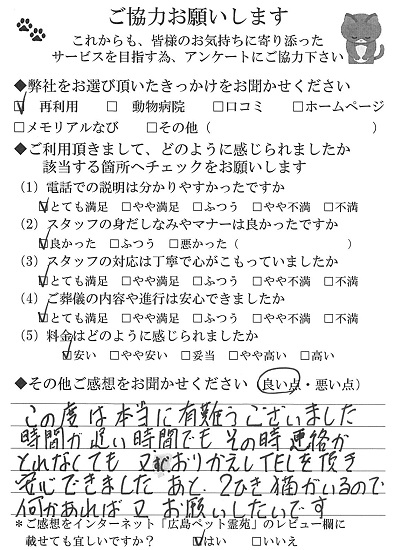 ご協力お願いします
これからも、皆様のお気持ちに寄り添った
サービスを目指す為、アンケートにご協力下さい
◆弊社をお選び頂いたきっかけをお聞かせください
☑ 再利用 □ 動物病院 □口コミ □ホームページ
□メモリアルなび □その他（ ）
◆ご利用頂きまして、どのように感じられましたか
該当する箇所へチェックをお願いします
（1）電話での説明は分かりやすかったですか
☑とても満足 □やや満足 □ふつう □やや不満 □不満
（2）スタッフの身だしなみやマナーは良かったですか
☑良かった □ふつう □悪かった（ ）
（3）スタッフの対応は丁寧で心がこもっていましたか
☑とても満足 □やや満足 □ふつう □やや不満 □不満
（4）ご葬儀の内容や進行は安心できましたか
☑とても満足 □やや満足 □ふつう □やや不満 □不満
（5）料金はどのように感じられましたか
☑安い □やや安い □妥当 □やや高い □高い
◆その他ご感想をお聞かせください（良い点・悪い点）
この度は本当に有難うございました
時間が遅い時間でもその時連絡が
とれなくても 又 おりかえしTELを頂き
安心できました あと、2ひき猫がいるので
何かあれば又お願いしたいです
＊ご感想をインターネット「広島ペット霊苑」のレビュー欄に
載せても宜しいですか？ ☑はい □いいえ